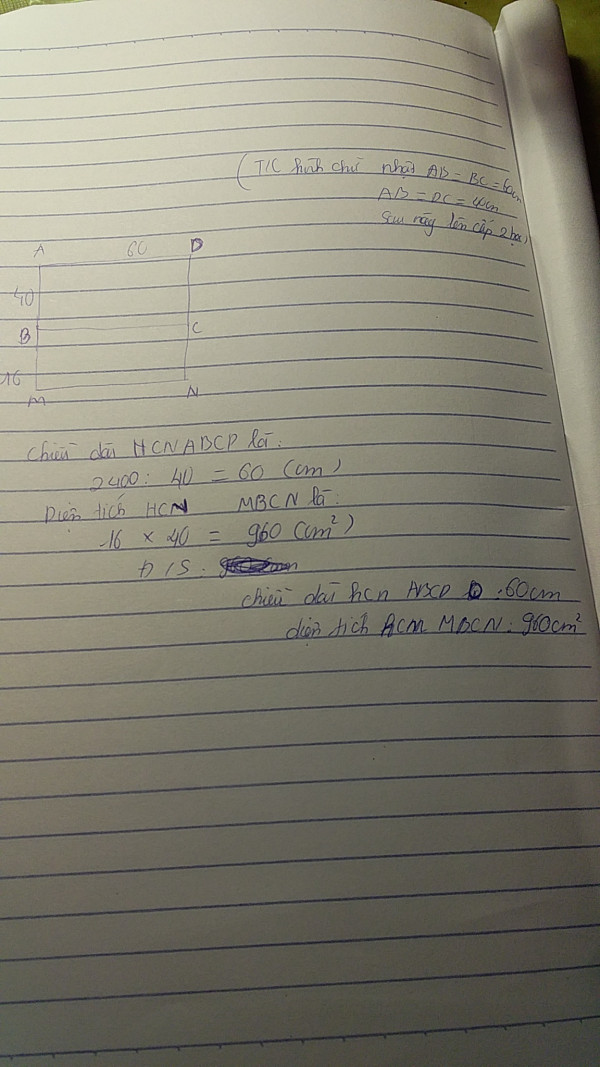 (T/C hình chữ nhật AD = BC = 60cm
AB = DC = 40cm
sau này lên cấp 2 học)
A 60 D
40
B C
16
M N
Chiều dài HCN ABCD là:
2400 : 40 = 60 (cm)
Diện tích HCN MBCN là:
16 × 40 = 960 (cm²)
Đ/S:
chiều dài hcn ABCD : 60cm
diện tích HCN MBCN : 960cm²